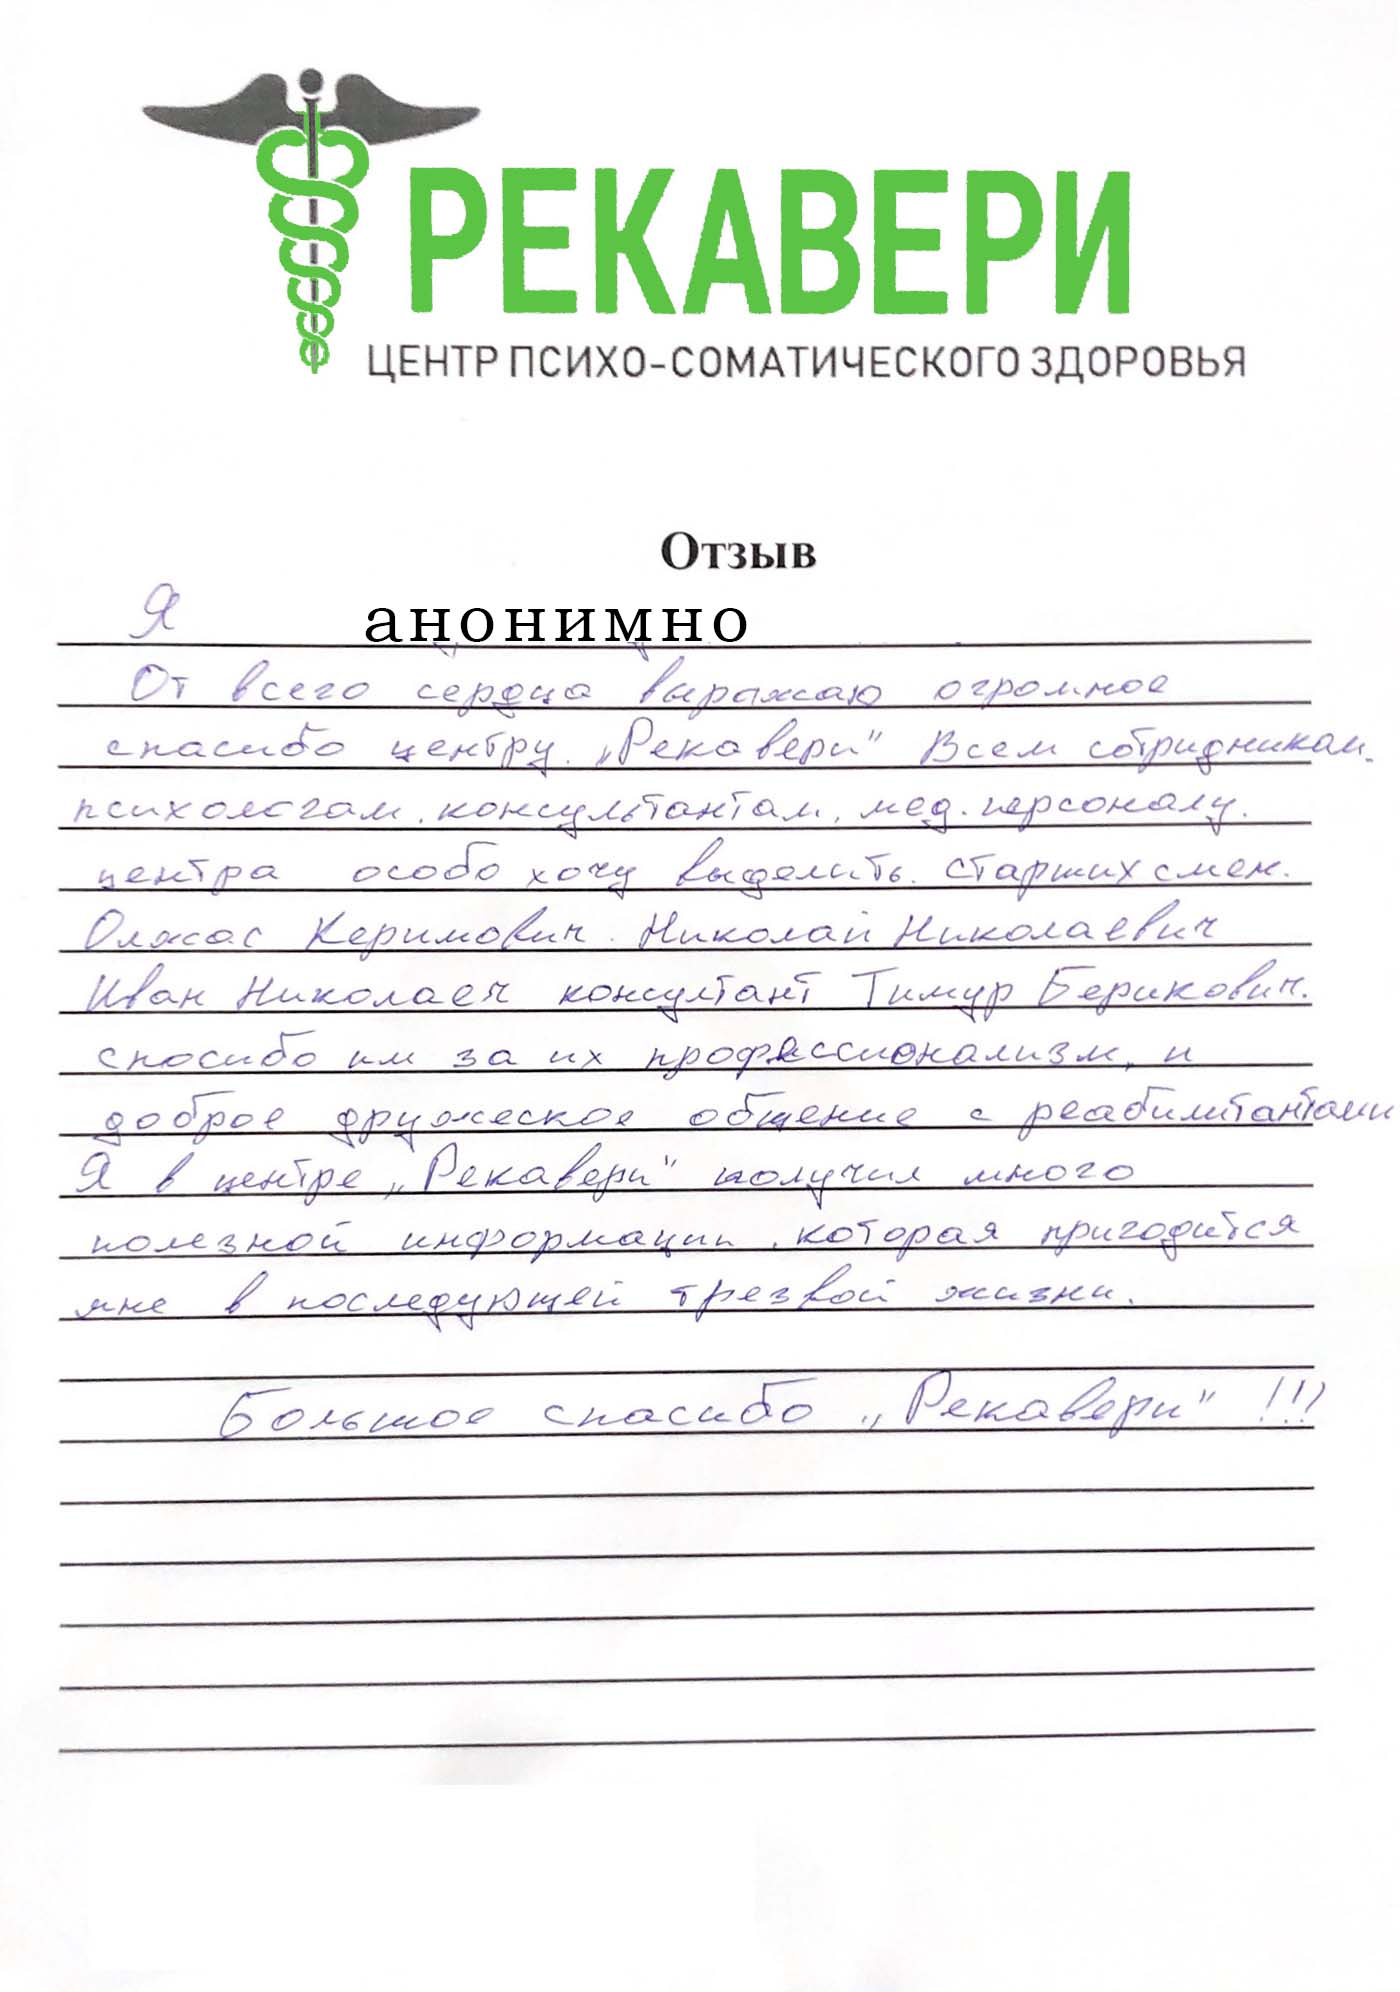 РЕКАВЕРИ
ЦЕНТР ПСИХО-СОМАТИЧЕСКОГО ЗДОРОВЬЯ
Отзыв
Я анонимно
От всего сердца выражаю огромное
спасибо центру. „Рекавери" Всем сотридникам.
психологам. консультантам, мед. персоналу.
центра особо хочу выделить. старших смен.
Олжас Керимович. Николай Николаевич
Иван Николаеч консултант Тимур Берикович.
спосибо им за их профессионализм, и
доброе дружеское общение с реабилитантами
Я в центре „Рекавери" получил много
полезной информации, которая пригодится
мне в последующей трезвой жизни.
Большое спасибо „Рекавери" !!!